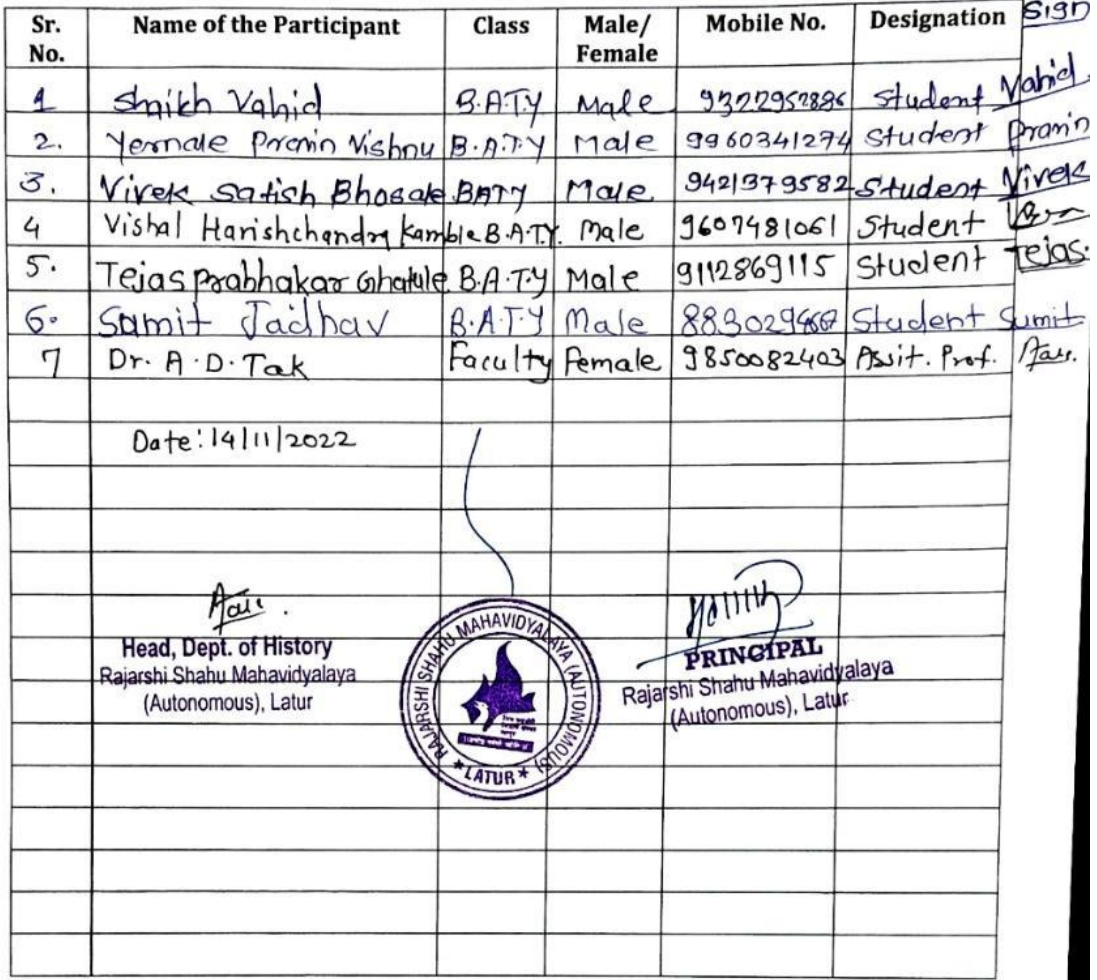 Sr. No. Name of the Participant Class Male/ Female Mobile No. Designation Sign
1 Shaikh Vahid B.A.T.Y Male 9322952886 Student Vahid
2. Yernale Pranin Vishnu B.A.T.Y Male 9960341274 Student Pranin
3. Vivek Satish Bhosale BATY Male 9421379582 Student Vivek
4 Vishal Harishchandra Kamble B.A.T.Y. Male 9607481061 Student
5. Tejas Prabhakar Ghatule B.A.T.Y Male 9112869115 Student Tejas.
6. Sumit Jadhav B.A.T.Y Male Student Sumit
7 Dr. A.D. Tak Faculty Female 9850082403 Assit. Prof.
Date: 14/11/2022
Head, Dept. of History
Rajarshi Shahu Mahavidyalaya
(Autonomous), Latur
RAJARSHI SHAHU MAHAVIDYALAYA (AUTONOMOUS)
* LATUR *
PRINCIPAL
Rajarshi Shahu Mahavidyalaya
(Autonomous), Latur